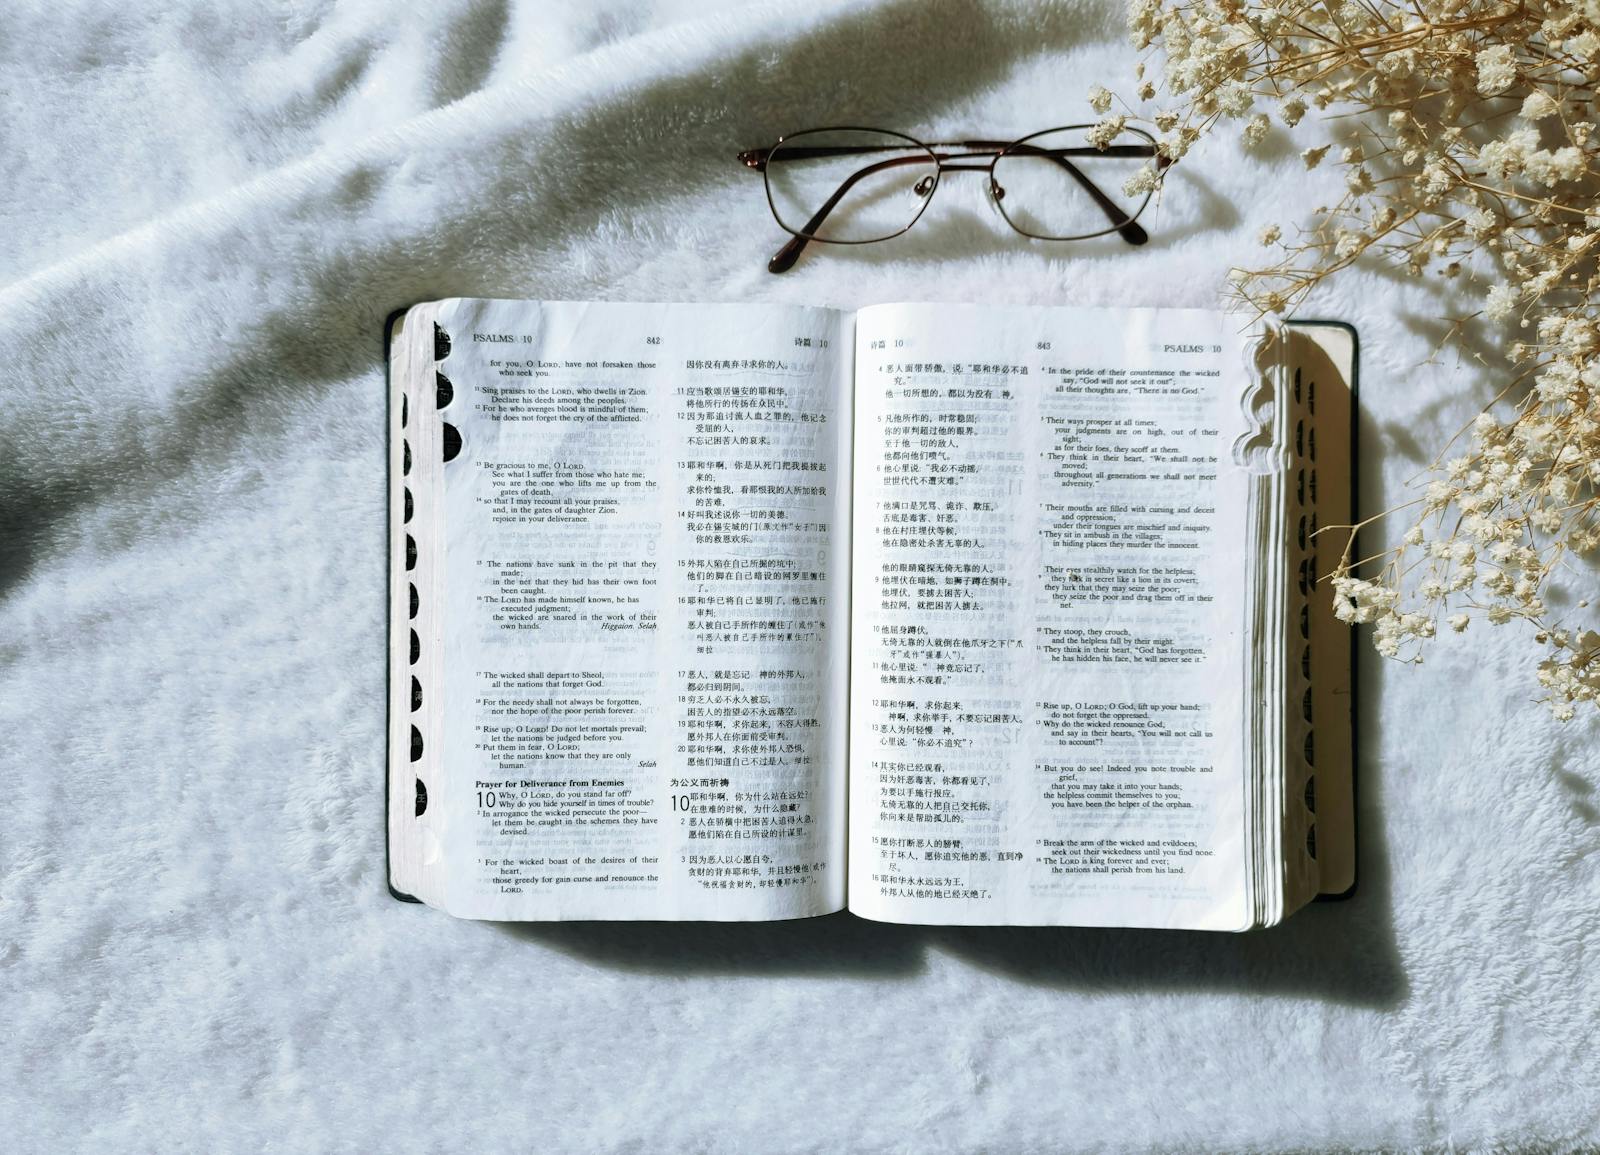 PSALMS 10
842
诗篇 10
for you, O LORD, have not forsaken those
who seek you.
11 Sing praises to the LORD, who dwells in Zion.
Declare his deeds among the peoples.
12 For he who avenges blood is mindful of them;
he does not forget the cry of the afflicted.
13 Be gracious to me, O LORD.
See what I suffer from those who hate me;
you are the one who lifts me up from the
gates of death,
14 so that I may recount all your praises,
and, in the gates of daughter Zion,
rejoice in your deliverance.
15 The nations have sunk in the pit that they
made;
in the net that they hid has their own foot
been caught.
16 The LORD has made himself known, he has
executed judgment;
the wicked are snared in the work of their
own hands. Higgaion. Selah
17 The wicked shall depart to Sheol,
all the nations that forget God.
18 For the needy shall not always be forgotten,
nor the hope of the poor perish forever.
19 Rise up, O LORD! Do not let mortals prevail;
let the nations be judged before you.
20 Put them in fear, O LORD;
let the nations know that they are only
human. Selah
Prayer for Deliverance from Enemies
10 Why, O LORD, do you stand far off?
Why do you hide yourself in times of trouble?
2 In arrogance the wicked persecute the poor—
let them be caught in the schemes they have
devised.
3 For the wicked boast of the desires of their
heart,
those greedy for gain curse and renounce the
LORD.
因你没有离弃寻求你的人。
11 应当歌颂居锡安的耶和华,
将他所行的传扬在众民中。
12 因为那追讨流人血之罪的,他记念
受屈的人,
不忘记困苦人的哀求。
13 耶和华啊,你是从死门把我提拔起
来的;
求你怜恤我,看那恨我的人所加给我
的苦难,
14 好叫我述说你一切的美德。
我必在锡安城的门(原文作“女子”)因
你的救恩欢乐。
15 外邦人陷在自己所掘的坑中;
他们的脚在自己暗设的网罗里缠住
了。
16 耶和华已将自己显明了,他已施行
审判;
恶人被自己手所作的缠住了(或作“他
叫恶人被自己手所作的累住了”)。
细拉
17 恶人,就是忘记 神的外邦人,
都必归到阴间。
18 穷乏人必不永久被忘,
困苦人的指望必不永远落空。
19 耶和华啊,求你起来,不容人得胜,
愿外邦人在你面前受审判。
20 耶和华啊,求你使外邦人恐惧,
愿他们知道自己不过是人。细拉
为公义而祈祷
10 耶和华啊,你为什么站在远处?
在患难的时候,为什么隐藏?
2 恶人在骄横中把困苦人追得火急,
愿他们陷在自己所设的计谋里。
3 因为恶人以心愿自夸,
贪财的背弃耶和华,并且轻慢他(或作
“他祝福贪财的,却轻慢耶和华”)。
诗篇 10
843
PSALMS 10
4 恶人面带骄傲,说:“耶和华必不追
究。”
他一切所想的,都以为没有 神。
5 凡他所作的,时常稳固;
你的审判超过他的眼界。
至于他一切的敌人,
他都向他们喷气。
6 他心里说:“我必不动摇,
世世代代不遭灾难。”
7 他满口是咒骂、诡诈、欺压,
舌底是毒害、奸恶。
8 他在村庄埋伏等候,
他在隐密处杀害无辜的人。
他的眼睛窥探无倚无靠的人。
9 他埋伏在暗地,如狮子蹲在洞中。
他埋伏,要掳去困苦人;
他拉网,就把困苦人掳去。
10 他屈身蹲伏,
无倚无靠的人就倒在他爪牙之下(“爪
牙”或作“强暴人”)。
11 他心里说:“ 神竟忘记了,
他掩面永不观看。”
12 耶和华啊,求你起来;
神啊,求你举手,不要忘记困苦人。
13 恶人为何轻慢 神,
心里说:“你必不追究”?
14 其实你已经观看,
因为奸恶毒害,你都看见了,
为要以手施行报应。
无倚无靠的人把自己交托你,
你向来是帮助孤儿的。
15 愿你打断恶人的膀臂,
至于坏人,愿你追究他的恶,直到净
尽。
16 耶和华永永远远为王,
外邦人从他的地已经灭绝了。
4 In the pride of their countenance the wicked
say, “God will not seek it out”;
all their thoughts are, “There is no God.”
5 Their ways prosper at all times;
your judgments are on high, out of their
sight;
as for their foes, they scoff at them.
6 They think in their heart, “We shall not be
moved;
throughout all generations we shall not meet
adversity.”
7 Their mouths are filled with cursing and deceit
and oppression;
under their tongues are mischief and iniquity.
8 They sit in ambush in the villages;
in hiding places they murder the innocent.
Their eyes stealthily watch for the helpless;
9 they lurk in secret like a lion in its covert;
they lurk that they may seize the poor;
they seize the poor and drag them off in their
net.
10 They stoop, they crouch,
and the helpless fall by their might.
11 They think in their heart, “God has forgotten,
he has hidden his face, he will never see it.”
12 Rise up, O LORD; O God, lift up your hand;
do not forget the oppressed.
13 Why do the wicked renounce God,
and say in their hearts, “You will not call us
to account”?
14 But you do see! Indeed you note trouble and
grief,
that you may take it into your hands;
the helpless commit themselves to you;
you have been the helper of the orphan.
15 Break the arm of the wicked and evildoers;
seek out their wickedness until you find none.
16 The LORD is king forever and ever;
the nations shall perish from his land.